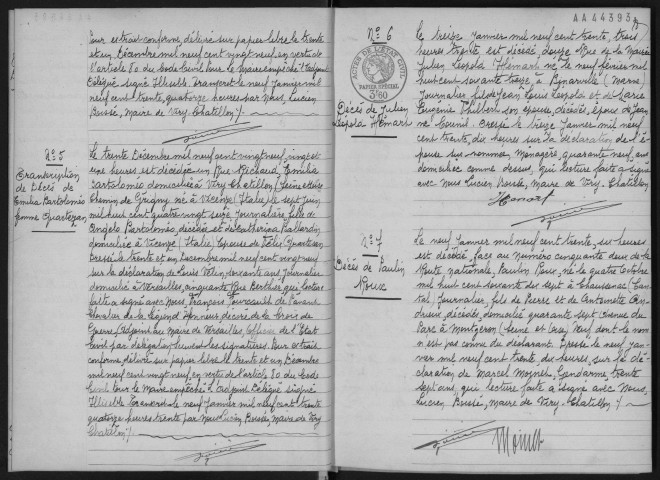 Pour extrait conforme, délivré sur papier libre le trente
et un Décembre mil neuf cent vingt neuf en vertu de
l'article 80 du Code Civil Pour le Maire empêché l'adjoint
délégué signé Illisible Transcrit le neuf Janvier mil
neuf cent trente, quatorze heures par Nous Lucien
Boussé, Maire de Viry-Chatillon /.
N° 5
Transcription
de Décès de
Emilia Bartolomeo
femme Quartezan
Le trente Décembre mil neuf cent vingt neuf, vingt et
une heures est décédée, en Rue Richaud, Emilia
Bartolomeo domiciliée à Viry Chatillon (Seine et Oise)
Chemin de Grigny, née à Vicenze (Italie) le sept Juin
mil huit cent quatre vingt Journalière, fille de
Angelo Bartolomeo, décédé et de Catherina
domiciliée à Vicenze (Italie), Epouse de Felix Quartezan
Dressé le trente et un Décembre mil neuf cent vingt neuf
sur la déclaration de Louis soixante ans Journalier
domicilié à Versailles, cinquante, Rue Berthier, qui lecture
faite a signé avec Nous, François
Chevalier de la Légion d'Honneur décoré de la Croix de
Guerre, Adjoint au Maire de Versailles, Officier de l'Etat
Civil par délégation Suivent les signatures. Pour extrait
conforme, délivré sur papier libre le trente et un Décembre
mil neuf cent vingt neuf, en vertu de l'article 80 du Code
Civil Pour le Maire empêché l'adjoint délégué signé
Illisible Transcrit le neuf Janvier mil neuf cent trente
quatorze heures trente par Nous Lucien Boussé, Maire de Viry
Chatillon /.
AA44393
N° 6
ACTES DE L'ETAT CIVIL
PAPIER SPÉCIAL
3f60
Décès de Julien
Léopold Hémart
Le treize Janvier mil neuf cent trente, trois
heures trente, est décédé, douze Rue de la Mairie
Julien Léopold Hémart né le neuf février mil
huit cent soixante treize à Binarville (Marne)
Journalier fils de Jean Louis Léopold et de Marie
Eugénie Philbert son épouse, décédés, époux de Jean
ne Cournil. Dressé le treize Janvier mil neuf
cent trente, dix heures sur la déclaration de l'é-
pouse sus-nommée, Ménagère, quarante neuf ans
domiciliée comme dessus, qui lecture faite a signé
avec Nous Lucien Boussé, Maire de Viry-Chatillon
N° 7
Décès de Paulin
Roux
Le neuf Janvier mil neuf cent trente, six heures
est décédé, face au numéro cinquante deux de la
Route nationale, Paulin Roux, né le quatre Octobre
mil huit cent soixante dix sept à Chaussenac (Can-
tal), Journalier, fils de Pierre et de Antoinette An-
drieux, décédés, domicilié quarante sept Avenue du
Parc à Montgeron (Seine et Oise) Veuf dont le nom
n'est pas connu du déclarant. Dressé le neuf Jan-
vier mil neuf cent trente dix heures, sur la dé-
claration de Marcel Moinet, Gendarme trente
sept ans, qui lecture faite a signé avec Nous,
Lucien Boussé, Maire de Viry-Chatillon /.
Moinet